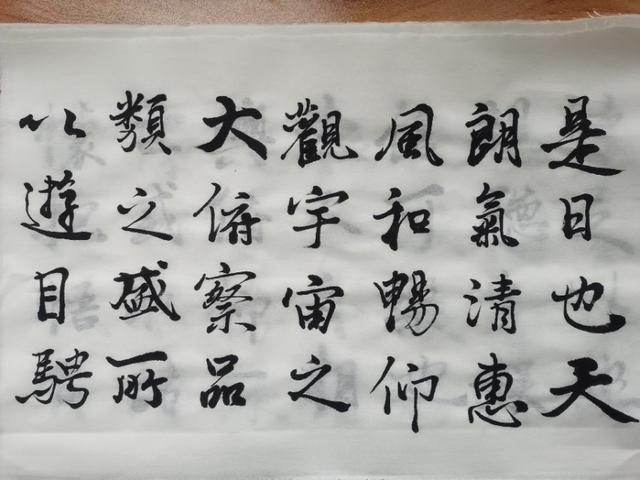 是日也天
朗氣清惠
風和暢仰
觀宇宙之
大俯察品
類之盛所
以遊目騁